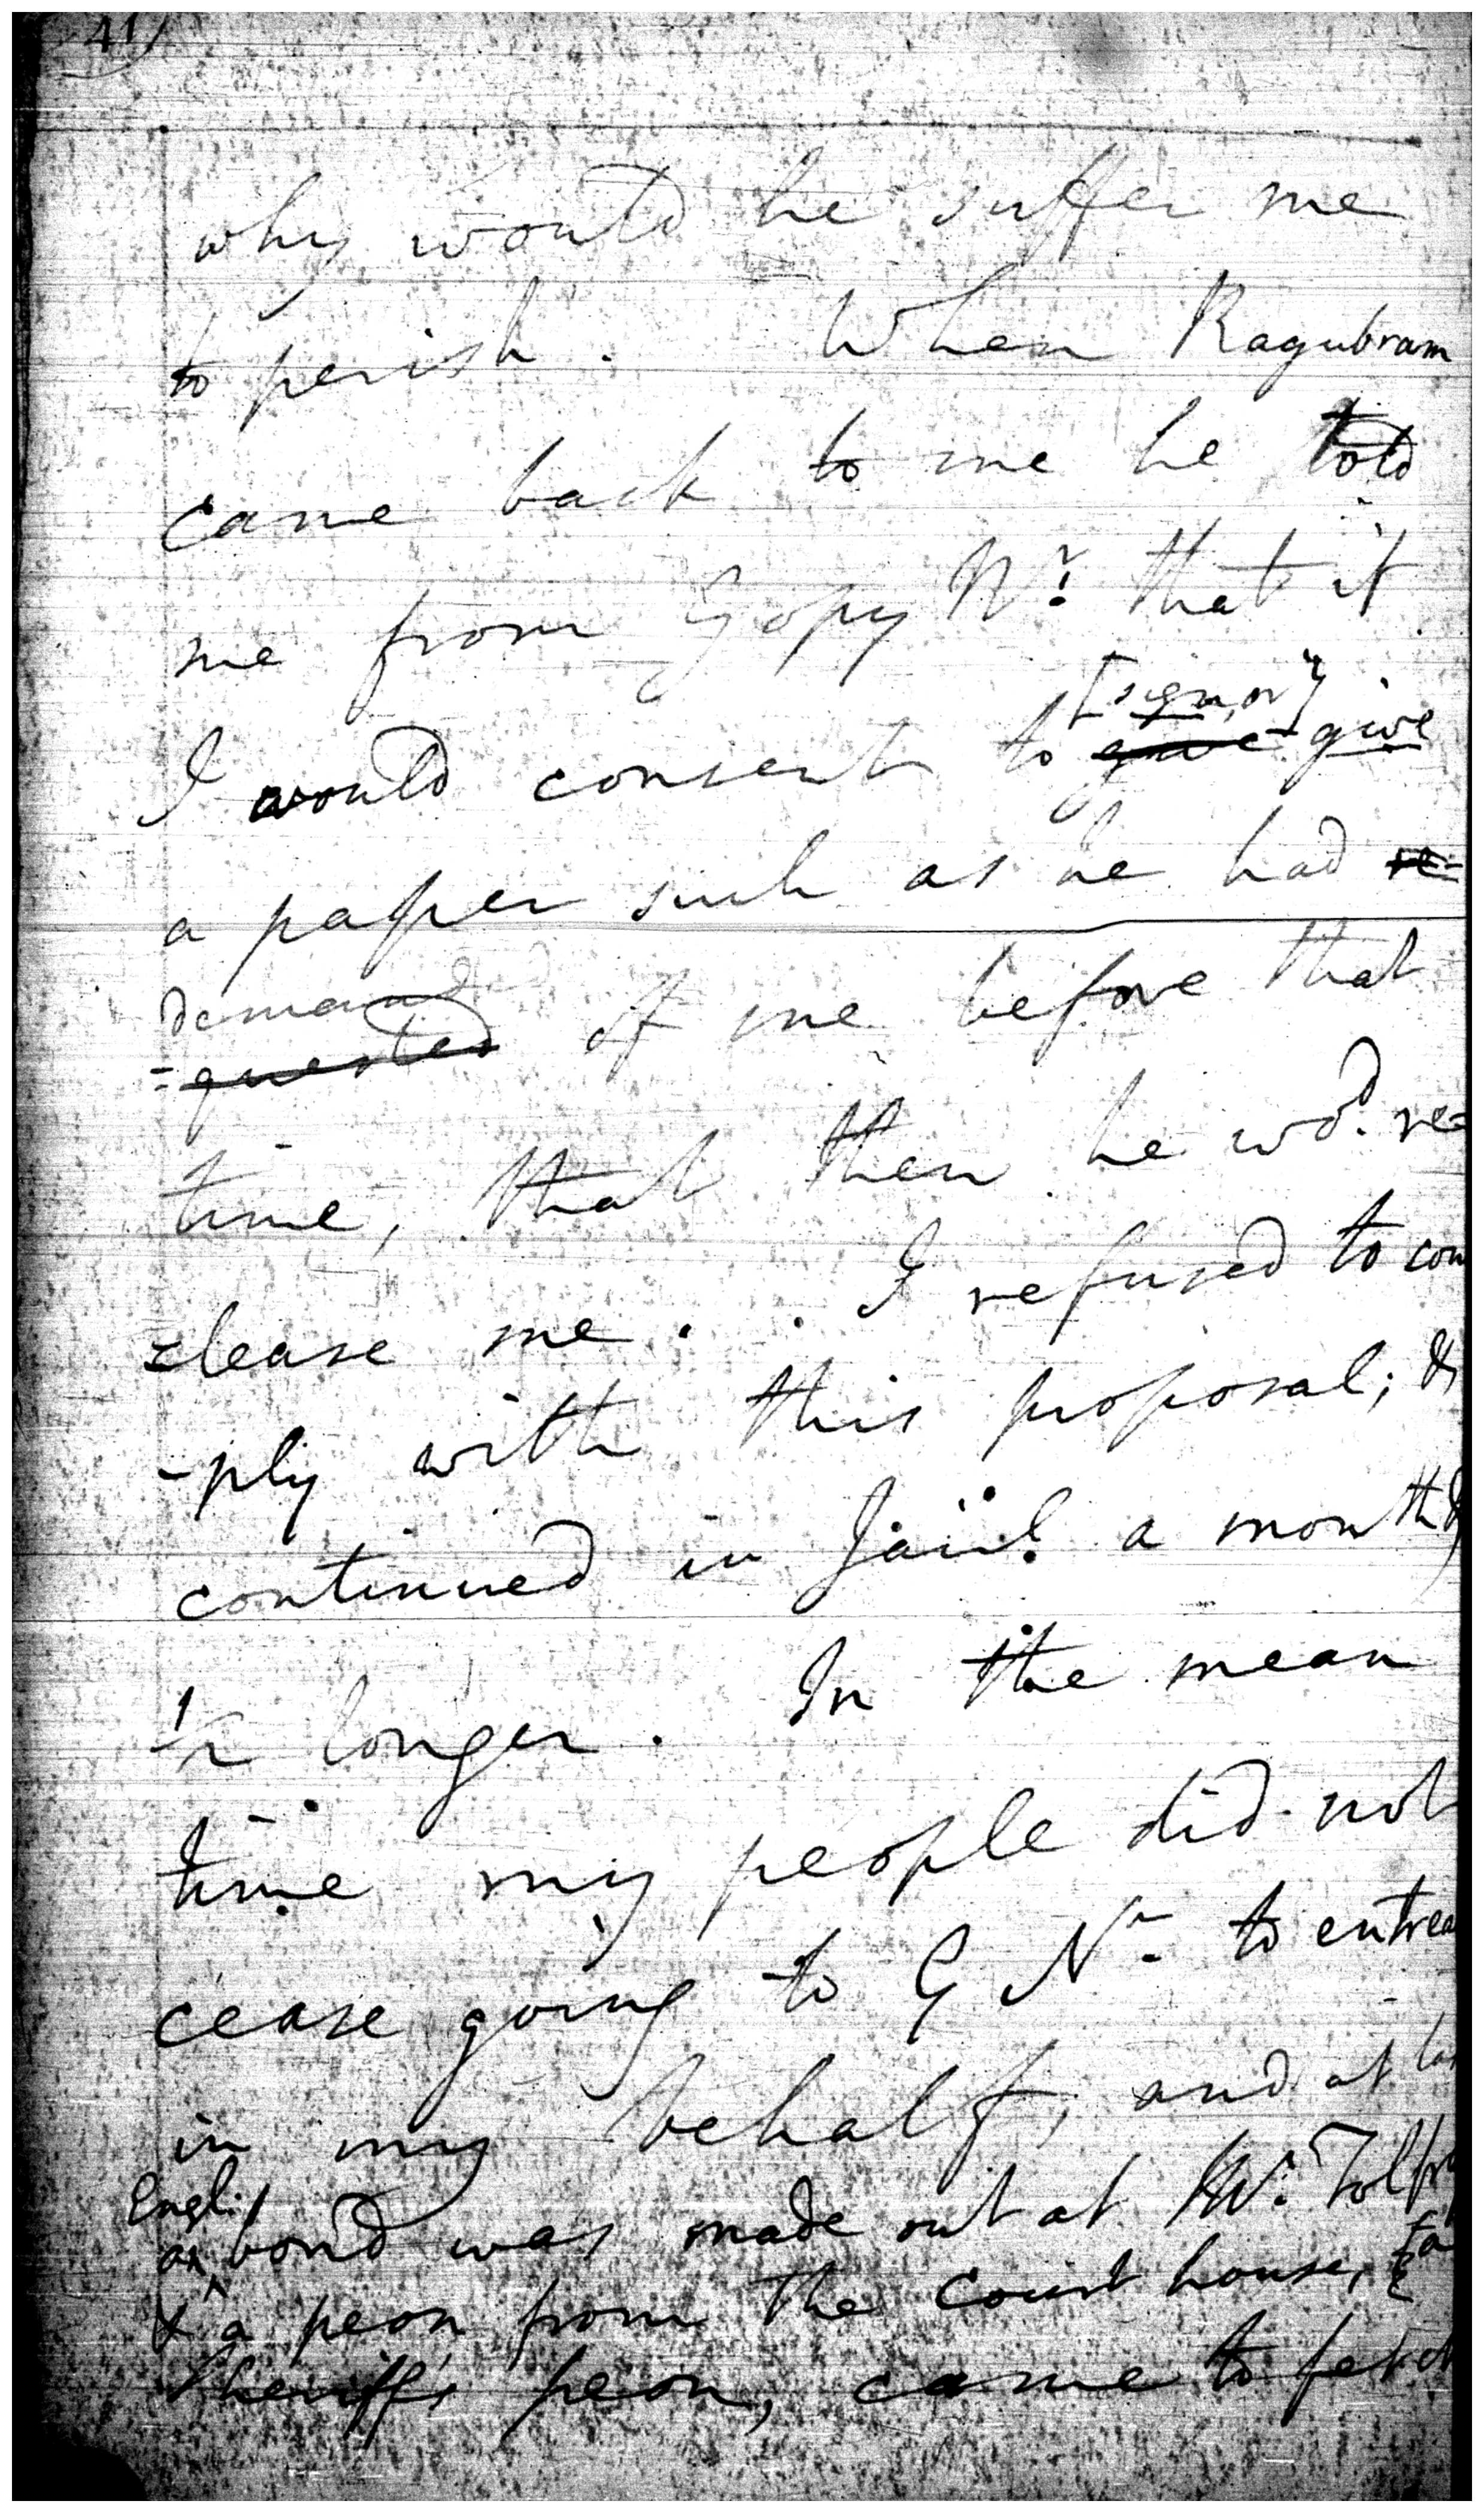 41)
why would he suffer me
to perish. When Ragubram
came back to me he told
me from Gopy Nr. that if
[sign, or]
I would consent to give give
a paper such as he had re-
demanded
=quested of me before that
time, that then he wd. re-
=lease me. I refused to com
-ply with this proposal; &
continued in Jail a month &
1/2 longer. In the mean
time my people did not
cease going to G Nr. to entrea
in my behalf, and at las
English
a bond was made out at Mr. Tolfry
& a peon from the Court house, & a
Sheriffs peon, came to fetch